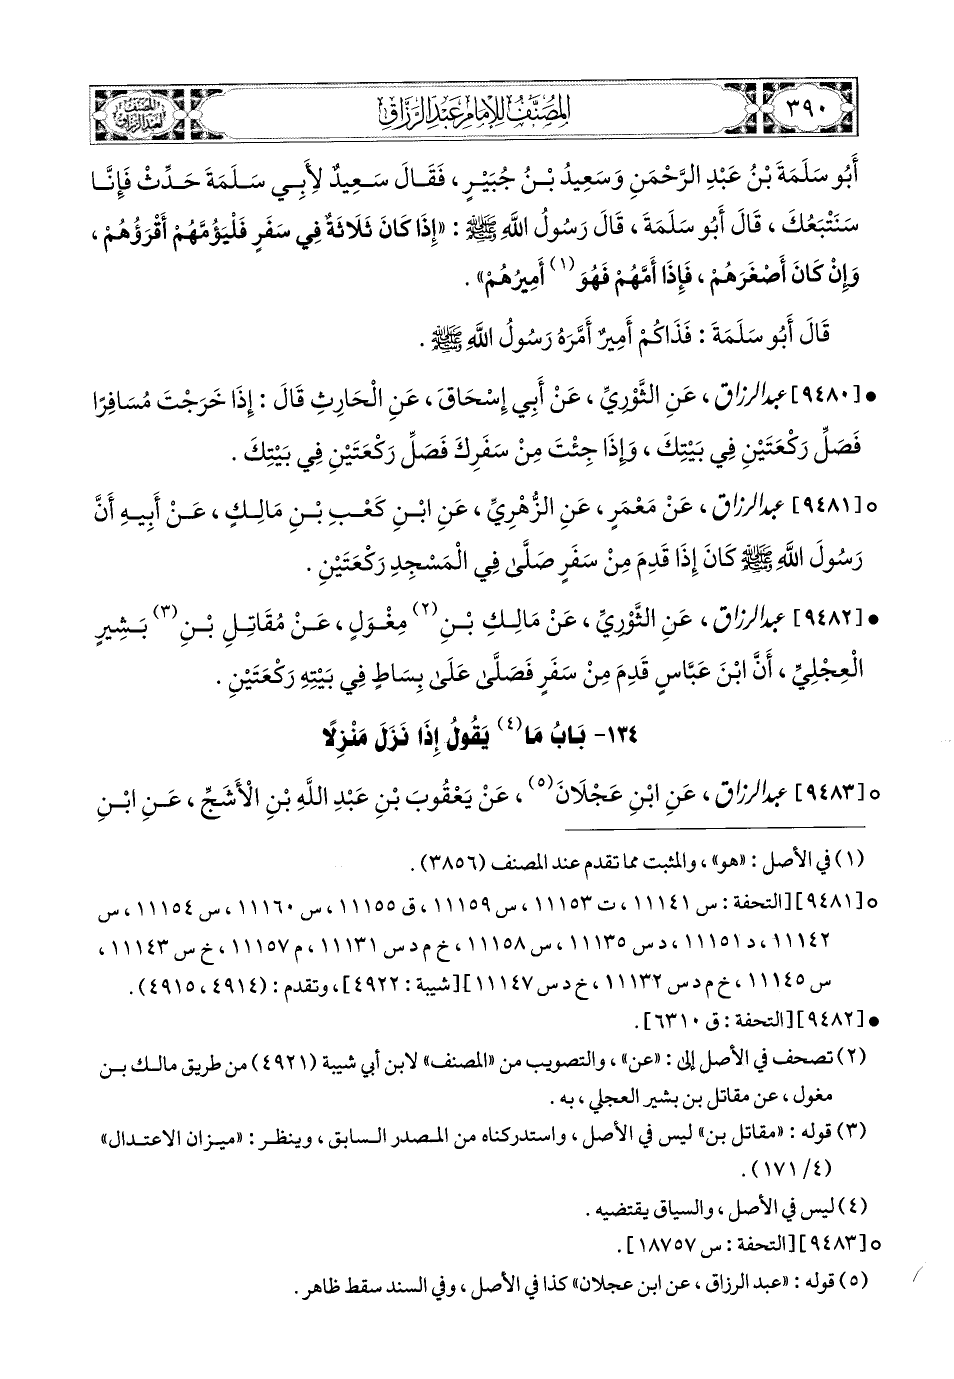 ٣٩٠
المُصَنَّفُ لِلإمَامِ عَبْدِ الرَّزَّاقِ
المصنف
لعبد الرزاق
أَبُو سَلَمَةَ بْنُ عَبْدِ الرَّحْمَنِ وَسَعِيدُ بْنُ جُبَيْرٍ ، فَقَالَ سَعِيدٌ لِأَبِي سَلَمَةَ حَدِّثْ فَإِنَّا
سَنَتْبَعُكَ ، قَالَ أَبُو سَلَمَةَ ، قَالَ رَسُولُ اللَّهِ ﷺ : «إِذَا كَانَ ثَلَاثَةٌ فِي سَفَرٍ فَلْيَؤُمَّهُمْ أَقْرَؤُهُمْ ،
وَإِنْ كَانَ أَصْغَرَهُمْ ، فَإِذَا أَمَّهُمْ فَهُوَ (١) أَمِيرُهُمْ» .
قَالَ أَبُو سَلَمَةَ : فَذَاكُمْ أَمِيرٌ أَمَّرَهُ رَسُولُ اللَّهِ ﷺ .
• [٩٤٨٠] عبد الرزاق ، عَنِ الثَّوْرِيِّ ، عَنْ أَبِي إِسْحَاقَ ، عَنِ الْحَارِثِ قَالَ : إِذَا خَرَجْتَ مُسَافِرًا
فَصَلِّ رَكْعَتَيْنِ فِي بَيْتِكَ ، وَإِذَا جِئْتَ مِنْ سَفَرِكَ فَصَلِّ رَكْعَتَيْنِ فِي بَيْتِكَ .
○ [٩٤٨١] عبد الرزاق ، عَنْ مَعْمَرٍ ، عَنِ الزُّهْرِيِّ ، عَنِ ابْنِ كَعْبِ بْنِ مَالِكٍ ، عَنْ أَبِيهِ أَنَّ
رَسُولَ اللَّهِ ﷺ كَانَ إِذَا قَدِمَ مِنْ سَفَرٍ صَلَّىٰ فِي الْمَسْجِدِ رَكْعَتَيْنِ .
• [٩٤٨٢] عبد الرزاق ، عَنِ الثَّوْرِيِّ ، عَنْ مَالِكِ بْنِ (٢) مِغْوَلٍ ، عَنْ مُقَاتِلِ بْنِ (٣) بَشِيرٍ
الْعِجْلِيِّ ، أَنَّ ابْنَ عَبَّاسٍ قَدِمَ مِنْ سَفَرٍ فَصَلَّىٰ عَلَىٰ بِسَاطٍ فِي بَيْتِهِ رَكْعَتَيْنِ .
١٣٤- بَابُ مَا (٤) يَقُولُ إِذَا نَزَلَ مَنْزِلًا
○ [٩٤٨٣] عبد الرزاق ، عَنِ ابْنِ عَجْلَانَ (٥) ، عَنْ يَعْقُوبَ بْنِ عَبْدِ اللَّهِ بْنِ الْأَشَجِّ ، عَنِ ابْنِ
(١) في الأصل : «هو» ، والمثبت مما تقدم عند المصنف (٣٨٥٦) .
○ [٩٤٨١] [التحفة : س ١١١٤١ ، ت ١١١٥٣ ، س ١١١٥٩ ، ق ١١١٥٥ ، س ١١١٦٠ ، س ١١١٥٤ ، س
١١١٤٢ ، د ١١١٥١ ، د س ١١١٣٥ ، س ١١١٥٨ ، خ م د س ١١١٣١ ، م ١١١٥٧ ، خ س ١١١٤٣ ،
س ١١١٤٥ ، خ م د س ١١١٣٢ ، خ د س ١١١٤٧] [شيبة : ٤٩٢٢] ، وتقدم : (٤٩١٤ ، ٤٩١٥) .
• [٩٤٨٢] [التحفة : ق ٦٣١٠] .
(٢) تصحف في الأصل إلى : «عن» ، والتصويب من «المصنف» لابن أبي شيبة (٤٩٢١) من طريق مالك بن
مغول ، عن مقاتل بن بشير العجلي ، به .
(٣) قوله : «مقاتل بن» ليس في الأصل ، واستدركناه من المصدر السابق ، وينظر : «ميزان الاعتدال»
(٤/ ١٧١) .
(٤) ليس في الأصل ، والسياق يقتضيه .
○ [٩٤٨٣] [التحفة : س ١٨٧٥٧] .
(٥) قوله : «عبد الرزاق ، عن ابن عجلان» كذا في الأصل ، وفي السند سقط ظاهر .